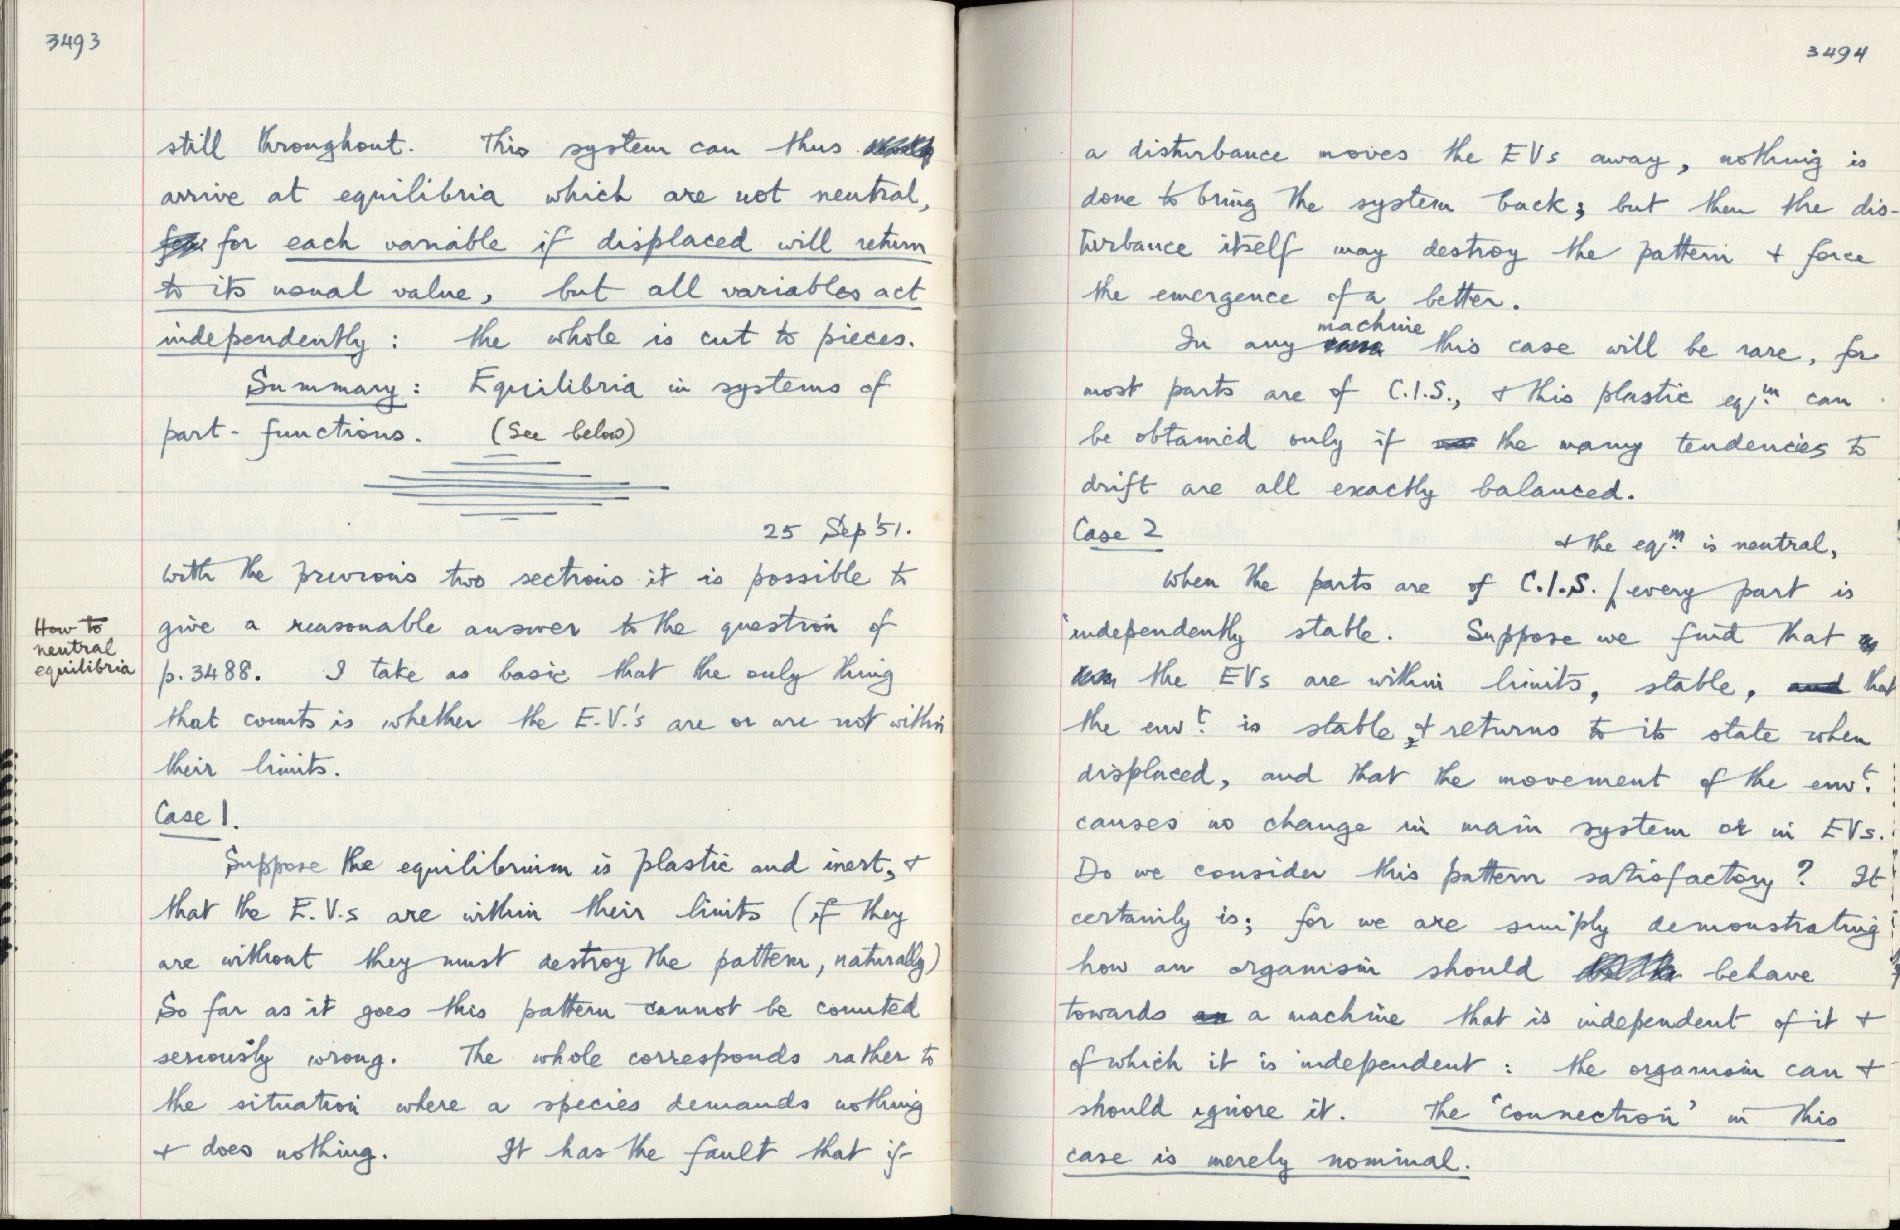 3493
still throughout. This system can thus
arrive at equilibria which are not neutral,
for each variable if displaced will return
to its usual value, but all variables act
independently : the whole is cut to pieces.
Summary : Equilibria in systems of
part-functions. (See below)
25 Sep '51.
With the previous two sections it is possible to
give a reasonable answer to the question of
p. 3488. I take as basic that the only thing
that counts is whether the E.V.'s are or are not within
their limits.
How to
neutral
equilibria
Case 1.
Suppose the equilibrium is plastic and inert, +
that the E.V.s are within their limits (if they
are without they must destroy the pattern, naturally)
So far as it goes this pattern cannot be counted
seriously wrong. The whole corresponds rather to
the situation where a species demands nothing
+ does nothing. It has the fault that if
3494
a disturbance moves the EVs away, nothing is
done to bring the system back; but then the dis-
turbance itself may destroy the pattern + force
the emergence of a better.
machine
In any this case will be rare, for
most parts are of C.I.S., + this plastic eqm. can
be obtained only if the many tendencies to
drift are all exactly balanced.
Case 2
+ the eqm. is neutral,
When the parts are of C.I.S. / every part is
independently stable. Suppose we find that
the EVs are within limits, stable, and that
the envt. is stable, + returns to its state when
displaced, and that the movement of the envt.
causes no change in main system or in EVs.
Do we consider this pattern satisfactory? It
certainly is; for we are simply demonstrating
how an organism should behave
towards an a machine that is independent of it +
of which it is independent : the organism can +
should ignore it. The 'connection' in this
case is merely nominal.